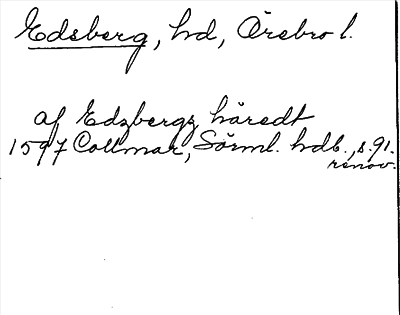 Edsberg, hd, Örebro l.
af Edzbergz häredt
1597 Collmar, Sörml. hdl., s. 91.
renov.